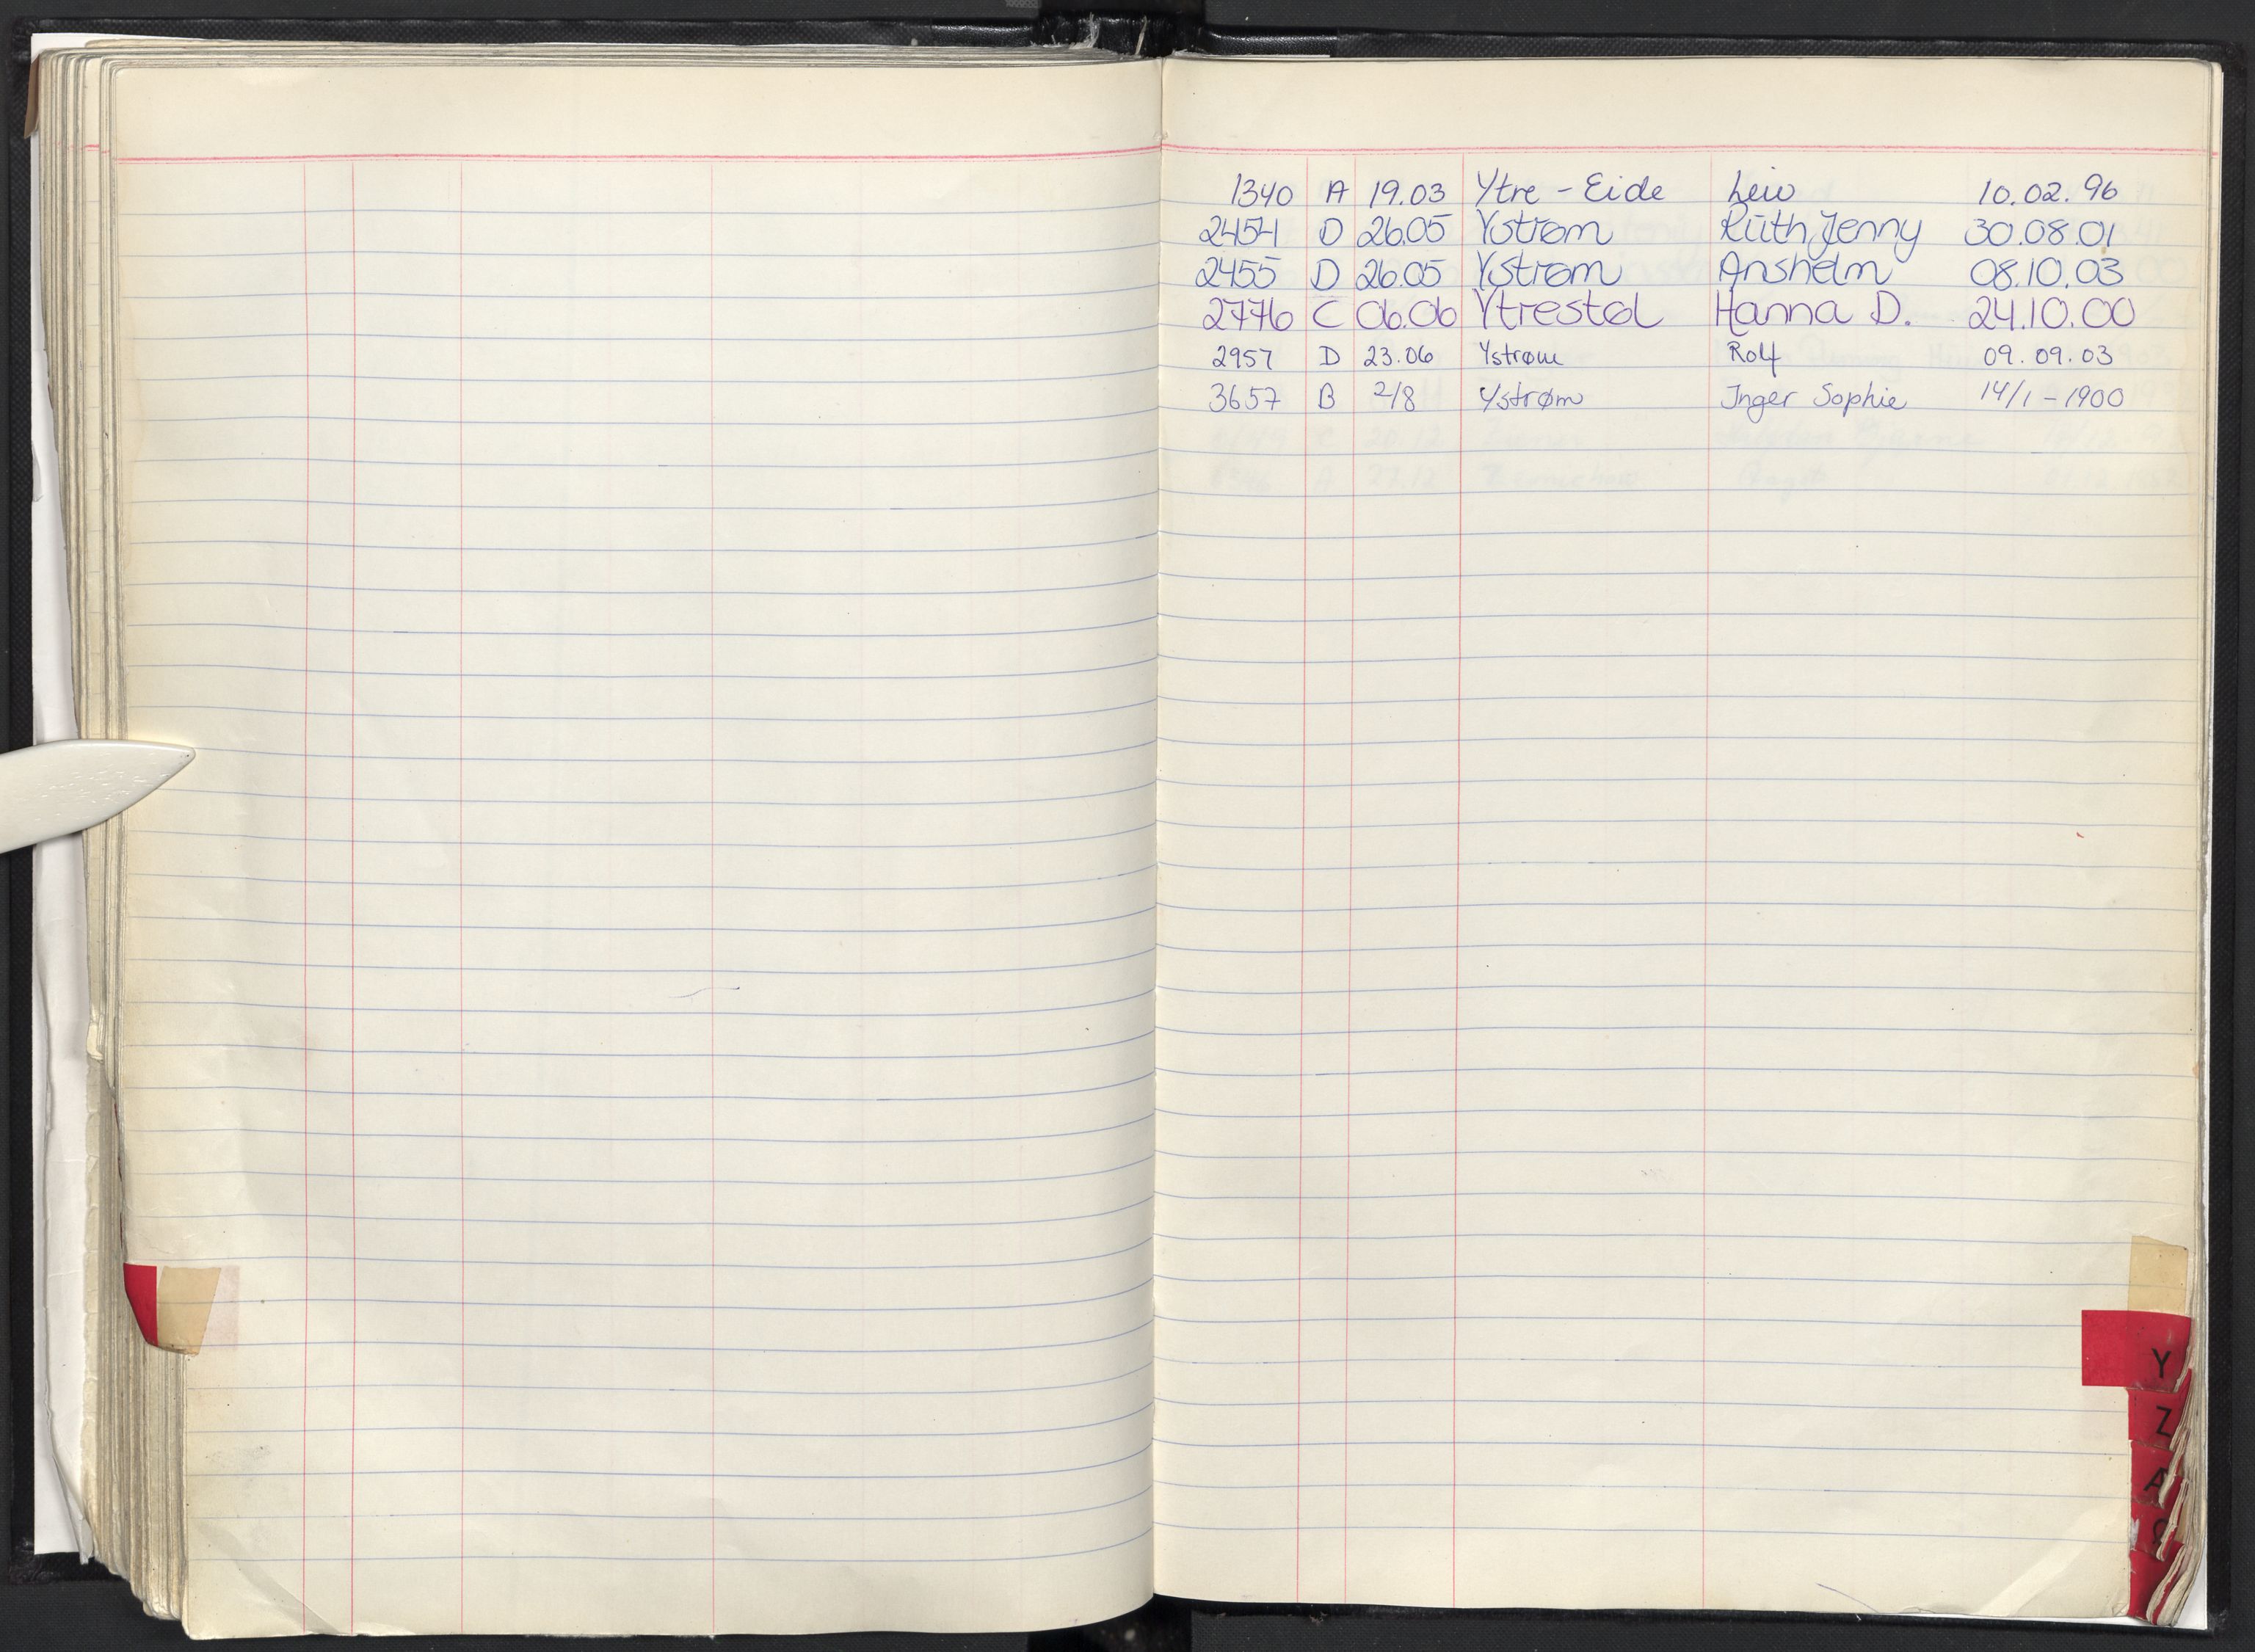 1340 A 19.03 Ytre - Eide Leiv 10.02.96
2454 D 26.05 Ystrøm Ruth Jenny 30.08.01
2455 D 26.05 Ystrøm Anshelm 08.10.03
2776 C 06.06 Ytrestøl Hanna D. 24.10.00
2957 D 23.06 Ystrøm Rolf 09.09.03
3657 B 2/8 Ystrøm Inger Sophie 14/1 - 1900
Y
Z